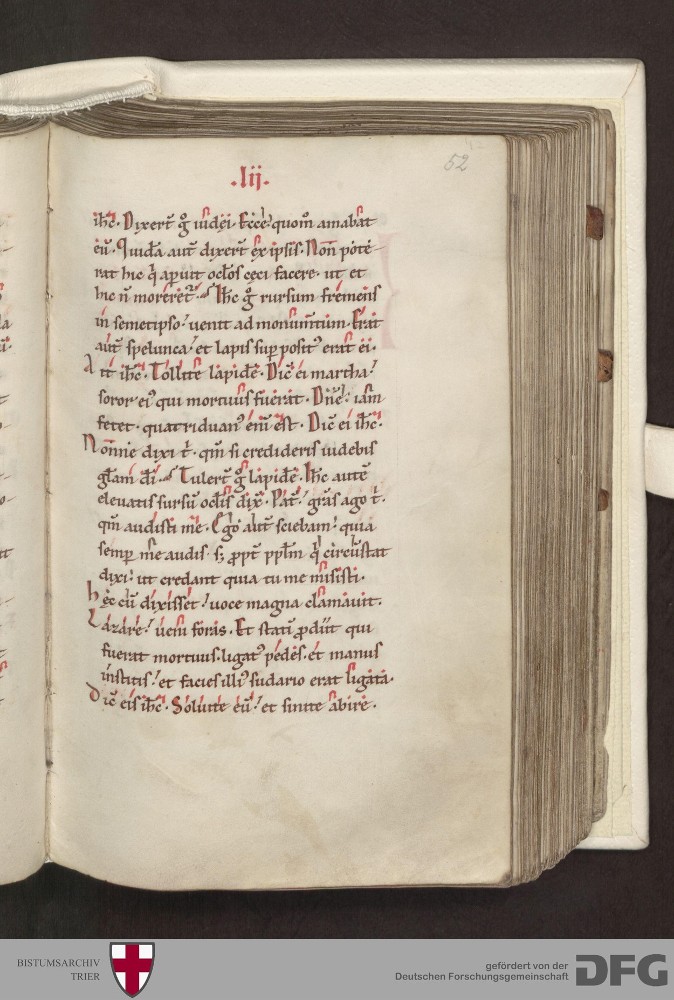 52
.lij.
ih̄c. Dixer̄t g̊ iudei. Ecce quom̄ amabat
eū. Quidā aut̄ dixer̄t ex ipsis. Non̄ pote
rat hic q̇ apuit oc̄los ceci facere. ut et
hic n̄ moreret᷑. Ih̄c g̊ rursum fremens
in semetipso: uenit ad monum̄tum. Erat
aut̄ spelunca: et lapis sup̲ posit᷒ erat ei.
Ait ih̄c. Tollite lapidē. Dic̄ ei martha:
soror ei᷒ qui mortuus fuerat. Dn̄e: iam
fetet. quatriduan᷒ eni̅ est. Dic̄ ei ih̄c.
Nonne dixi t̄. qm̄ si credideris uidebis
gl̄am di̅. Tuler̄t g̊ lapidē. Ih̄c autē
eleuatis sursū ocl̄is dix̄. Pat̄: gr̄as ago t̄.
qm̄ audisti me. Ego aut̄ sciebam: quia
semp̲ me audis. s; ꝓpt̄ ppl̄m q̇ circū̅stat
dixi: ut credant quia tu me misisti.
hęc cū dixisset: uoce magna clamauit.
Lazare: ueni foras. Et statī ꝓdiit qui
fuerat mortuus. ligat᷒ pedes. et manus
institis: et facies illi᷒ sudario erat ligata.
Dic̄ eis ih̄c. Soluite eū: et sinite abire.
BISTUMSARCHIV
TRIER
gefördert von der
Deutschen Forschungsgemeinschaft
DFG